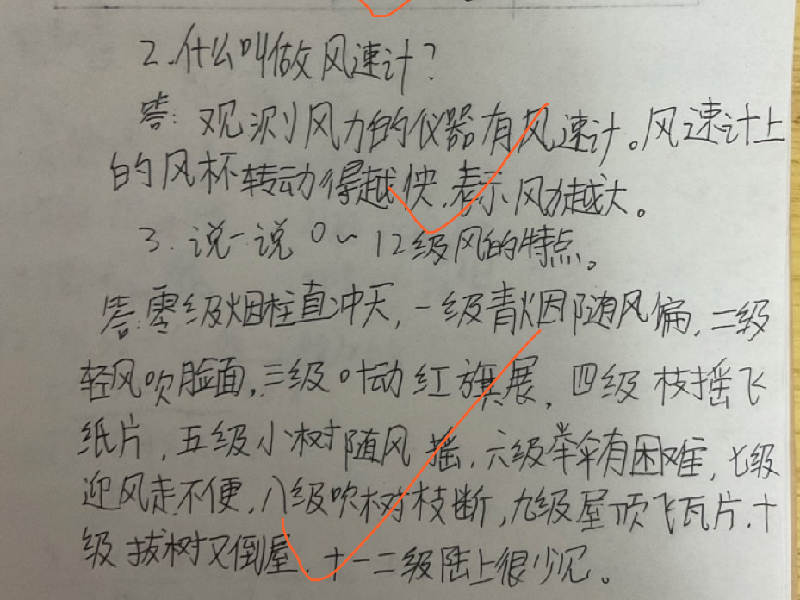 2.什么叫做风速计?
答:观测风力的仪器有风速计。风速计上
的风杯转动得越快,表示风力越大。
3.说一说0~12级风的特点。
答:零级烟柱直冲天,一级青烟随风偏,二级
轻风吹脸面,三级叶动红旗展,四级枝摇飞
纸片,五级小树随风摇,六级举伞有困难,七级
迎风走不便,八级吹树枝断,九级屋顶飞瓦片,十
级拔树又倒屋,十一二级陆上很少见。